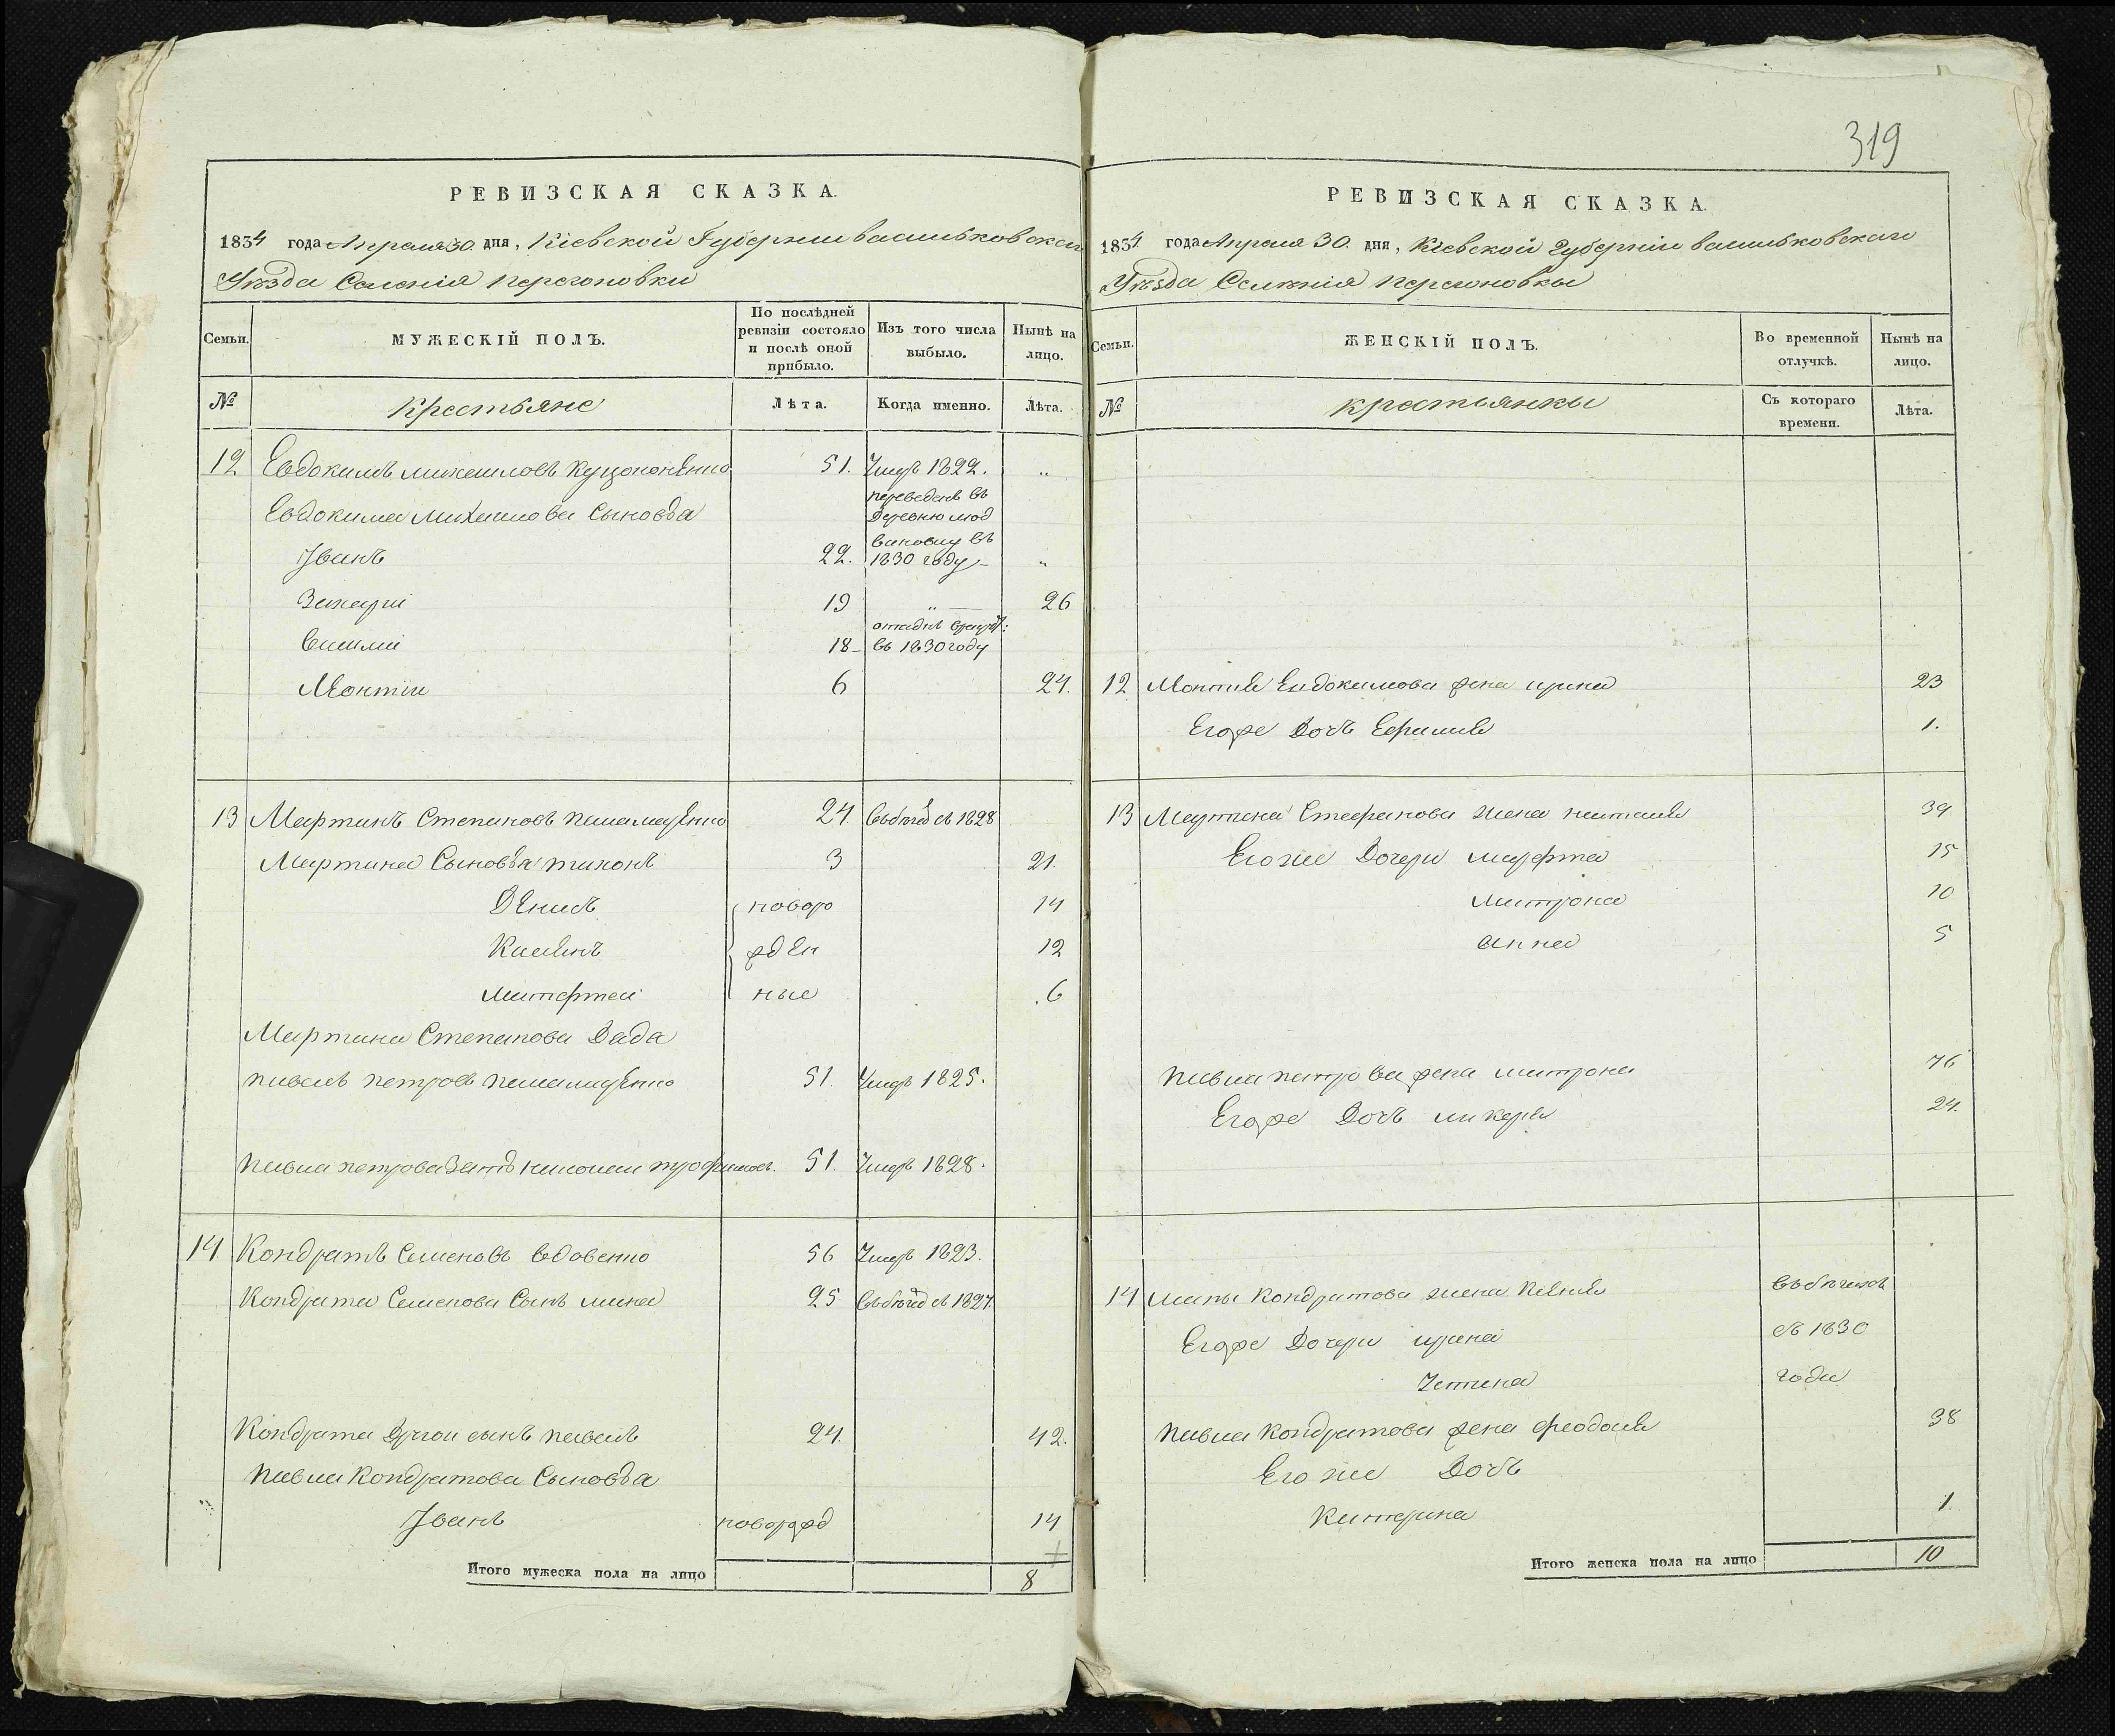 319
РЕВИЗСКАЯ СКАЗКА.
1834 года Апреля 30. дня, Кіевской Губерніи васильковскаго
Уѣзда Селенія перегоновки
Семьи.
МУЖЕСКІЙ ПОЛЪ.
По послѣдней ревизіи состояло и послѣ оной прибыло.
Изъ того числа выбыло.
Нынѣ на лицо.
№
Крестьяне
Лѣта.
Когда именно.
Лѣта.
12 Евдокимъ михаиловъ 51. Умеръ 1822. „
Евдокима Михаилова Сыновья
переведенъ въ
Деревню люд
виновку въ
Іванъ 22. 1830 году „
Захарій 19 „ 26
отданъ врекру:
Василій 18 въ 1830 году
Монтіи 6 24.
13 Мартинъ Степановъ 24 Въбѣгахъ съ 1828
Мартина Сыновья тихонъ 3 21.
Денисъ новоро 14
Касіянъ жден 12
Матфтей ные 6
Мартина Степанова Дядя
павелъ петровъ 51 Умеръ 1825.
павла петрова Зять николаи трофимовъ. 51. Умеръ 1828.
14 Кондратъ Семеновъ вдовенко 56 Умеръ 1823.
Кондрата Семенова Сынъ мина 25 Въбѣгахъ съ 1827.
Кондрата Другои сынъ павелъ 24. 42.
павла Кондратова Сыновья
Іванъ поворожд 14
Итого мужеска пола на лицо 8
РЕВИЗСКАЯ СКАЗКА.
1834 года Апреля 30. дня, Кіевской Губерніи васильковскаго
Уѣзда Селенія перегоновки
Семьи.
ЖЕНСКІЙ ПОЛЪ.
Во временной отлучкѣ.
Нынѣ на лицо.
№
крестьянки
Съ котораго времени.
Лѣта.
12 Монтія Евдокимова жена ирина 23
Егоже Дочъ Ефимія 1.
13 Мартина Стефанова жена наталія 39
Егоже Дочери марфта 15
матрона 10
анна 5
павла петрова жена матрона 76
Егоже Дочъ ликерія 24.
14 мины Кондратова жена Ксѣнія въбѣгахъ
Егоже Дочери ирина съ 1830
Устина года
павла кондратова жена феодосія 38
Егоже Дочъ
Катерина 1.
Итого женска пола на лицо 10